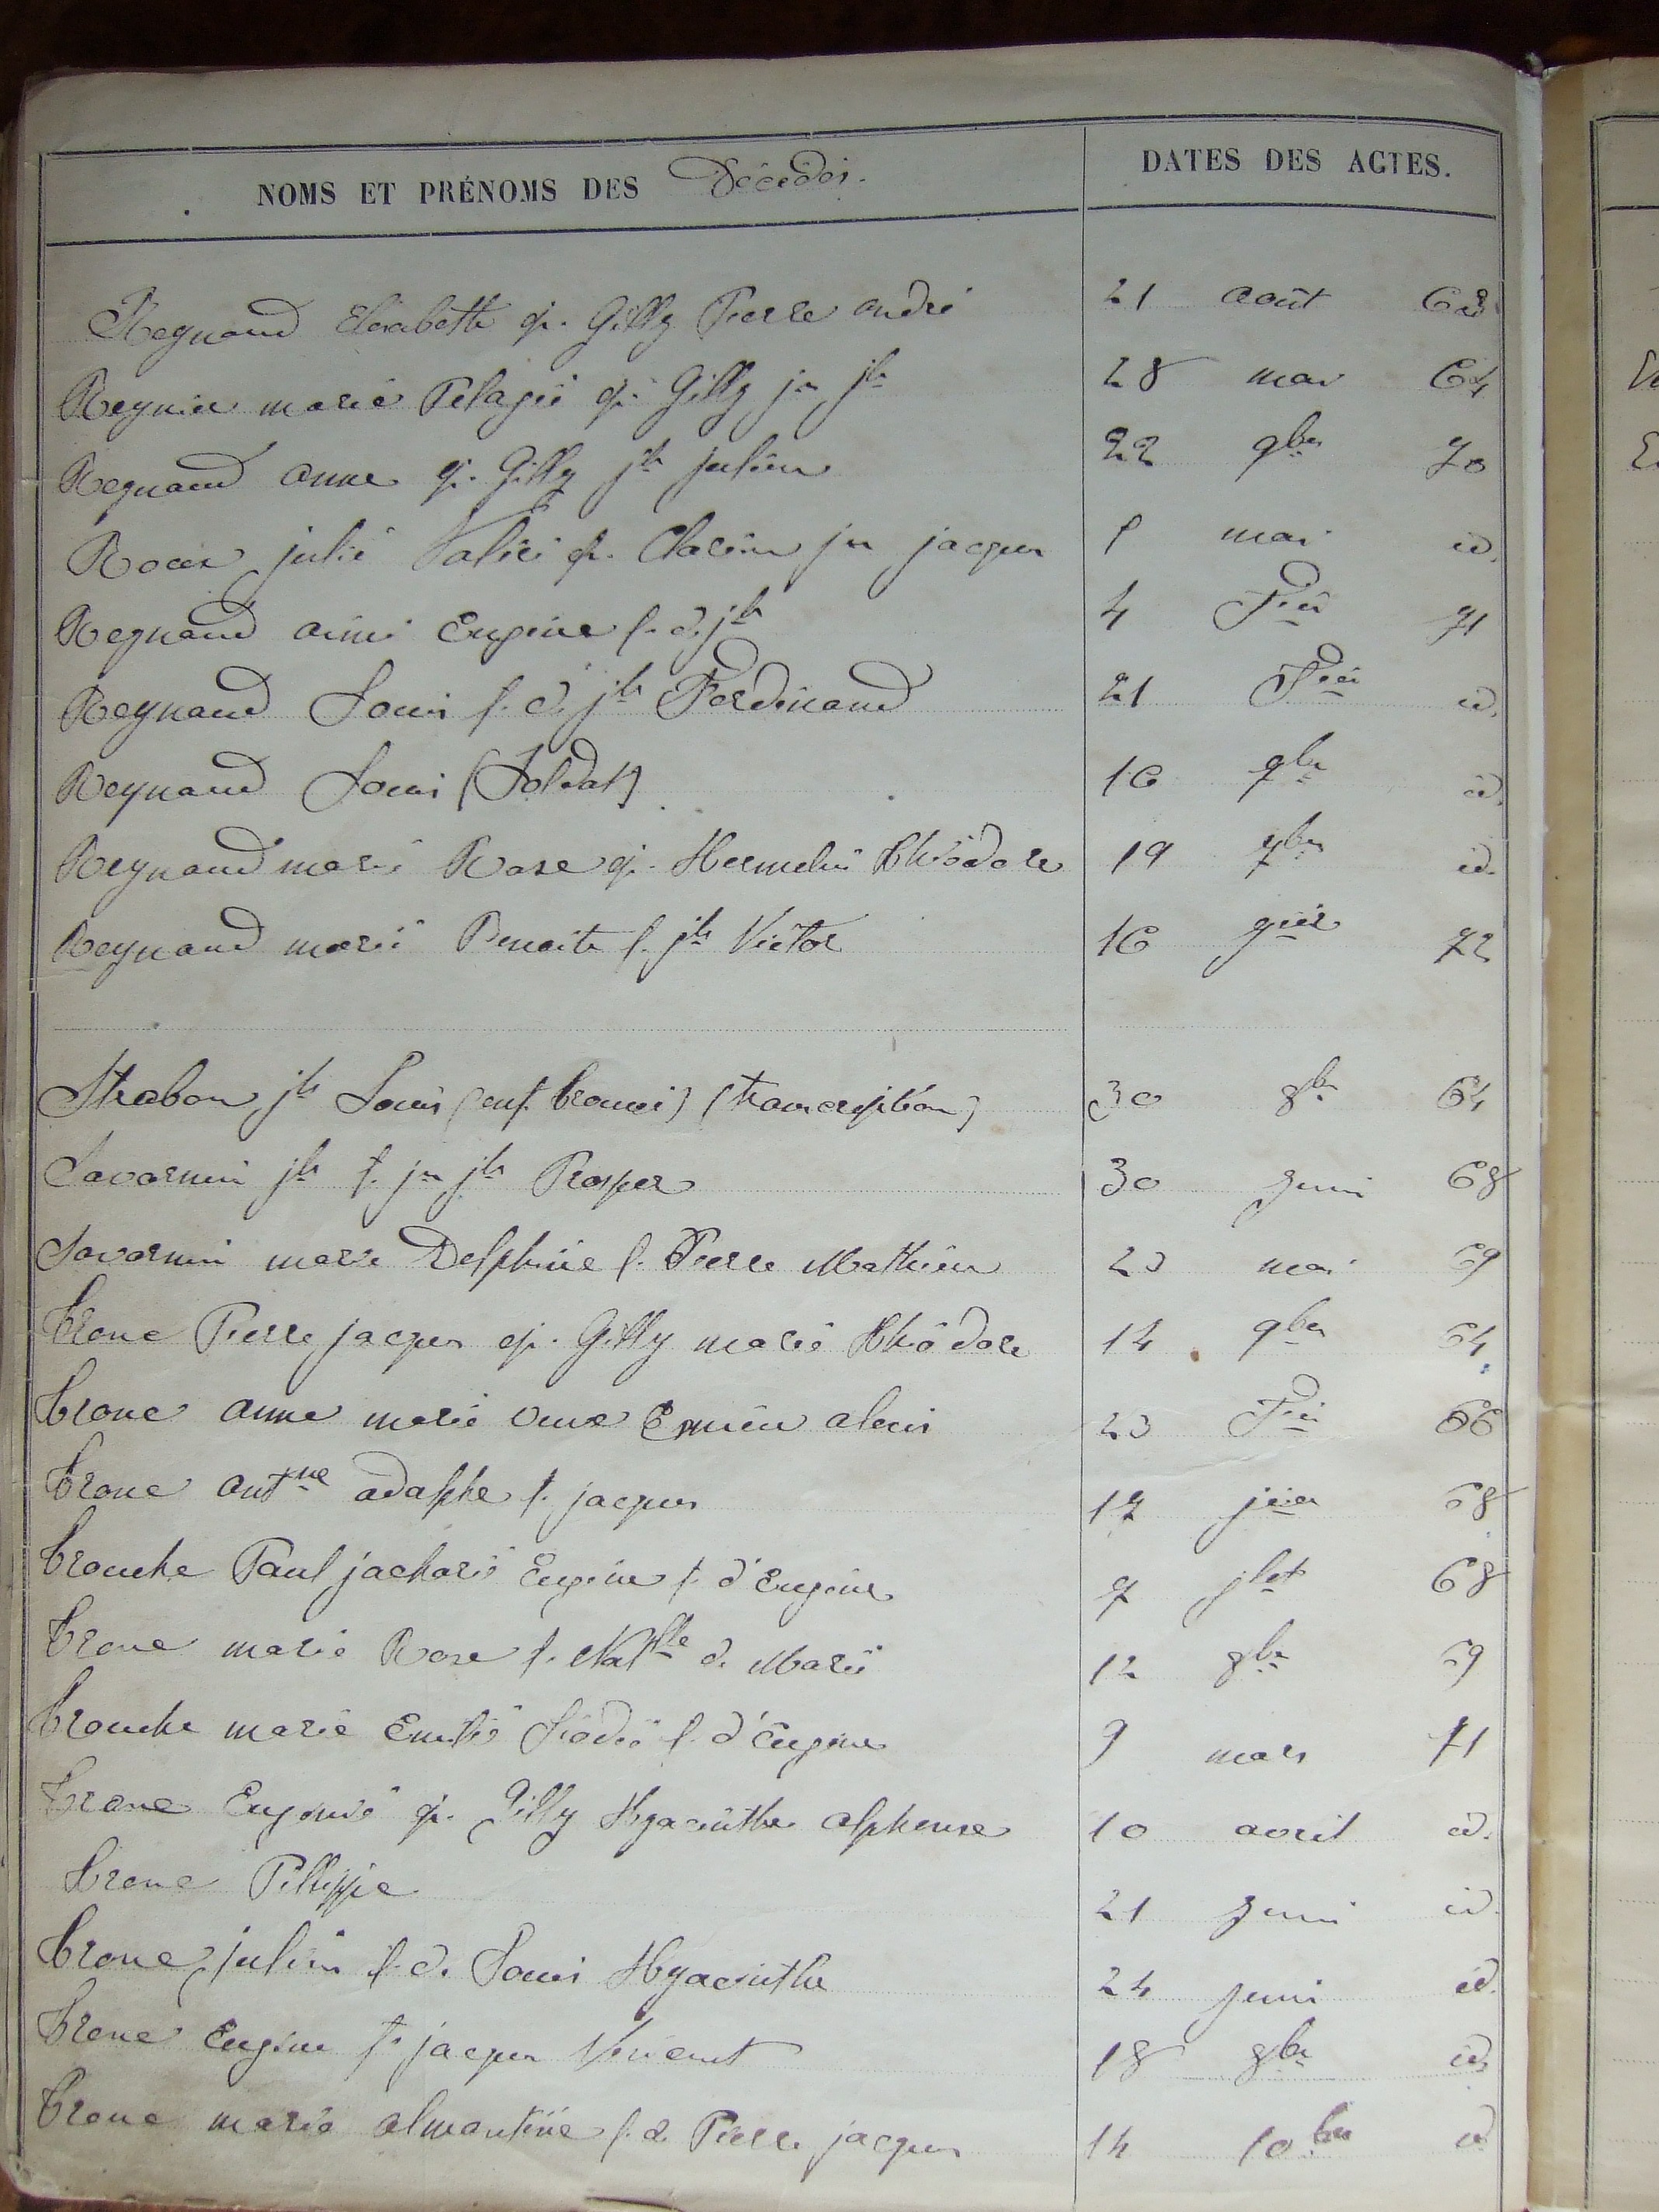 NOMS ET PRÉNOMS DES Décédés. DATES DES ACTES.
Reynaud Elisabeth ép. Gilly Pierre andré 21 août 63
Reynier marie Pélagie ép. Gilly jn jh 28 mai 64
Reynaud anne ép. Gilly jh julien 22 9bre 70
Roux julie ép. jn jacques mai id.
Reynaud aimé Eugène f. d. jh 4 71
Reynaud Louis f. d. jh Ferdinand 21 id.
Reynaud Louis (Soldat) 16 9bre id.
Reynaud marie Rose ép. Théodore 19 7bre id.
Reynaud marie Benoite f. jh Victor 16 72
Strabon jh Louis (enf. trouvé) (transcription) 30 8bre 64
Savornin jh f. jn jh Prosper 30 juin 68
Savornin marie Delphine f. Pierre Mathieu 23 mai 69
Tronc Pierre jacques ép. Gilly marie Théodore 14 9bre 64
Tronc anne marie veuve alexis 23 66
Tronc antne adolphe f. jacques 17 jier 68
Tronche Paul jacharie Eugène f. d'Eugène 7 jlet 68
Tronc marie Rose f. Natlle d. Marie 12 8bre 69
Tronche marie f. d'Eugène 9 mars 71
Tronc Eugénie ép. Gilly Hyacinthe alphonse 10 avril id.
Tronc Philippe 21 juin id.
Tronc julien f. d. Louis Hyacinthe 24 juin id.
Tronc Eugène f. jacques Vincent 18 8bre id.
Tronc marie almantine f. d. Pierre jacques 14 10bre id.